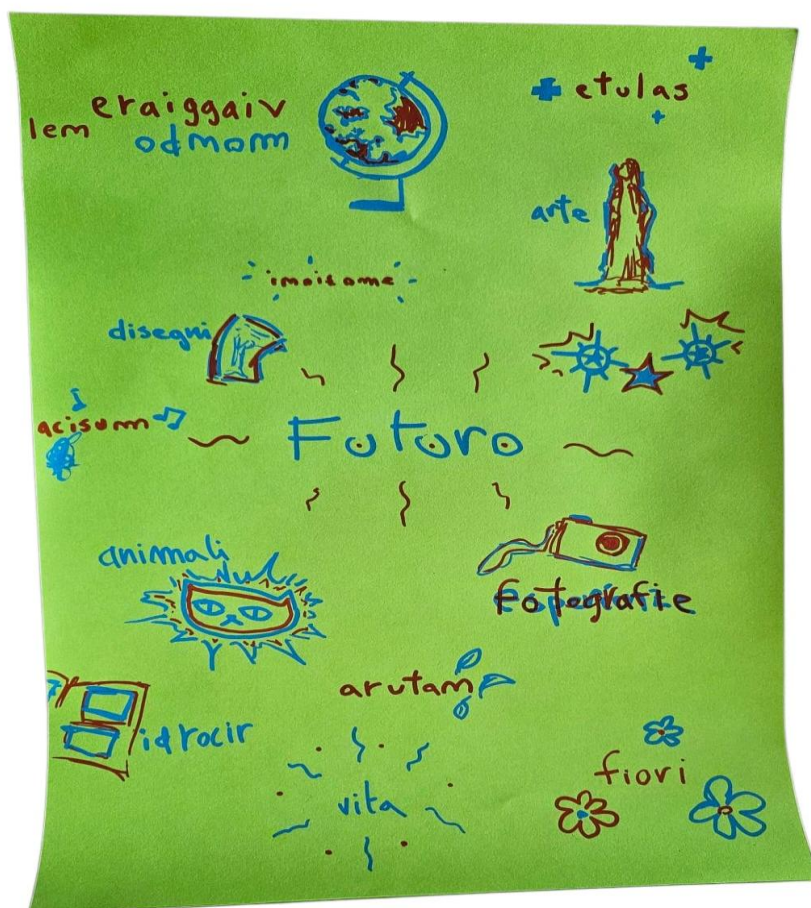 eraiggaiv
lem odmom
etulas
arte
imoizome
disegni
acisum
Futuro
animali
fotografie
arutan
idrocir
vita
fiori